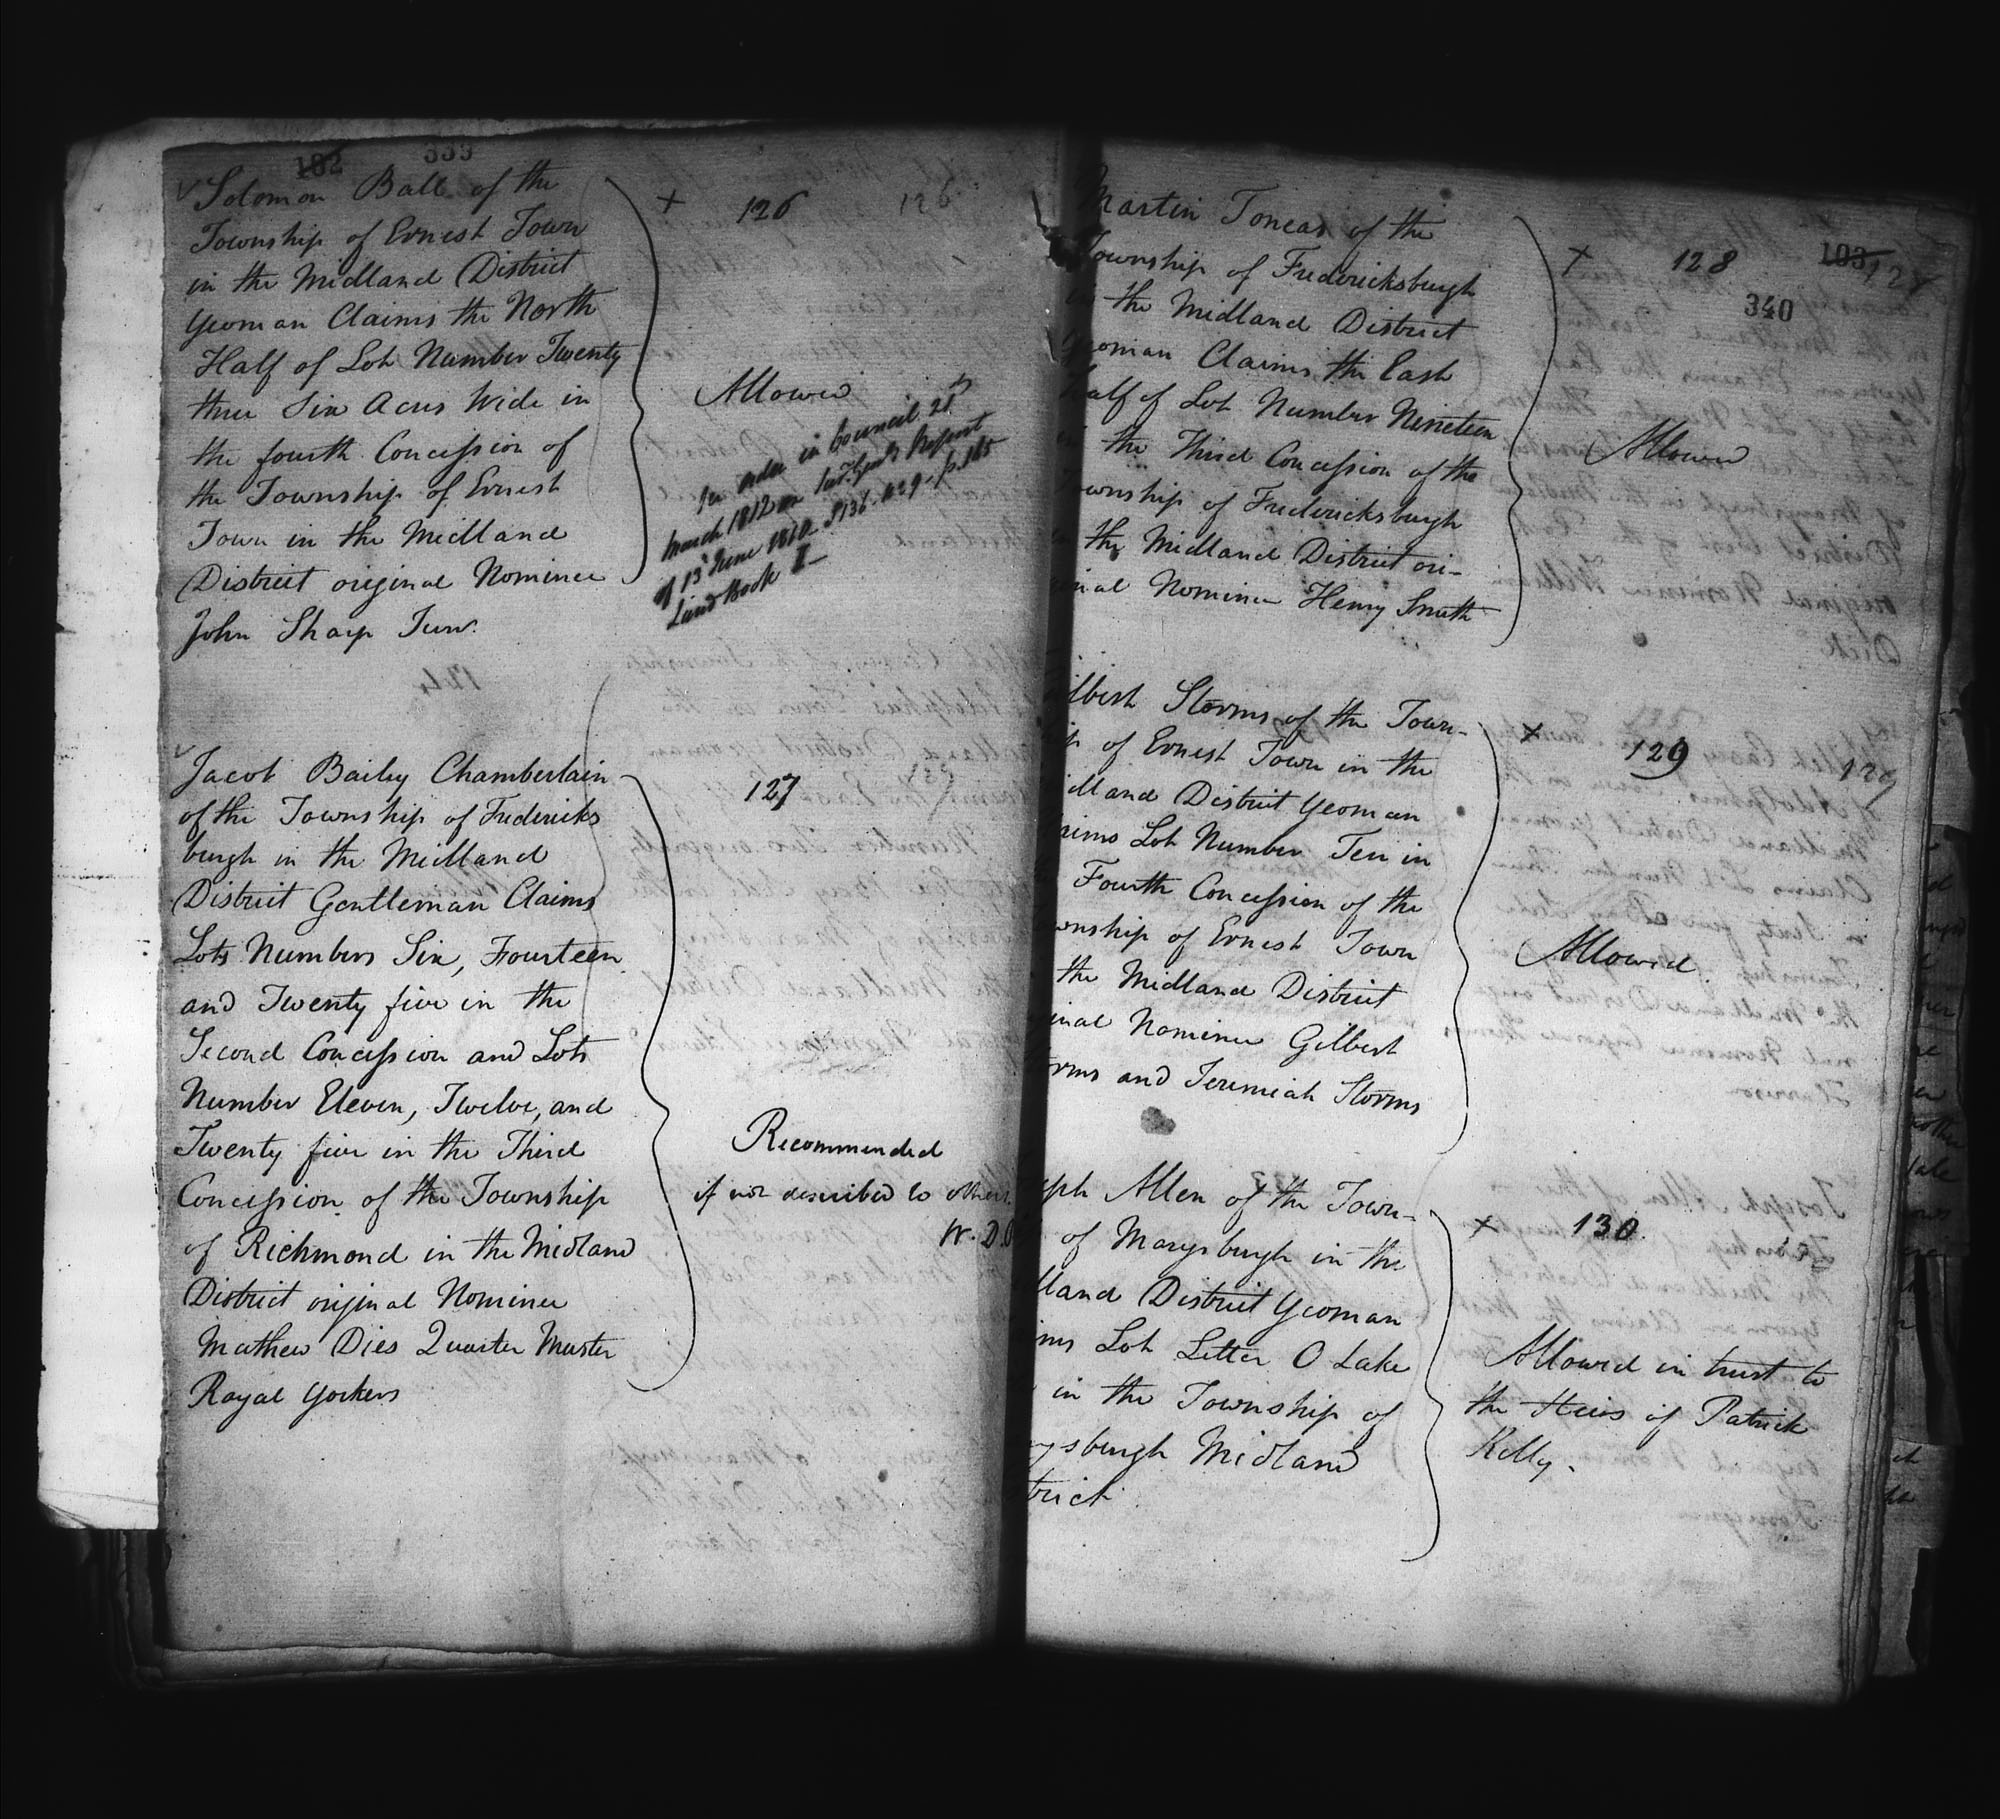 102 339
Solomon Ball of the
Township of Ernest Town
in the Midland District
Yeoman Claims the North
Half of Lot Number Twenty
three Six Acres Wide in
the fourth Concession of
the Township of Ernest
Town in the Midland
District original Nominee
John Sharp Junr.
+ 126 126
Allowed
per order in Council 21st
March 1812 on Genl's Report
of 13 June 1810 - p. 165
Land Book I
Jacob Baily Chamberlain
of the Township of Fredericks
burgh in the Midland
District Gentleman Claims
Lots Numbers Six, Fourteen
and Twenty five in the
Second Concession and Lots
Number Eleven, Twelve, and
Twenty five in the Third
Concession of the Township
of Richmond in the Midland
District original Nominee
Mathew Dies Quarter Master
Royal Yorkers
127
Recommended
if not described to others
W. D.
Martin Toncas of the
Township of Fredericksburgh
in the Midland District
Yeoman Claims the East
Half of Lot Number Nineteen
in the Third Concession of the
Township of Fredericksburgh
the Midland District ori-
ginal Nominee Henry Smith
+ 128 103 128
340
Allowed
lbert Storms of the Town-
p of Ernest Town in the
idland District Yeoman
aims Lot Number Ten in
Fourth Concession of the
wnship of Ernest Town
the Midland District
inal Nominee Gilbert
orms and Jeremiah Storms
+ 129 129
Allowed
eph Allen of the Town-
of Marysburgh in the
dland District Yeoman
ims Lot Letter O Lake
in the Township of
ysburgh Midland
trict
+ 130.
Allowed in trust to
the Heirs of Patrick
Kelly.